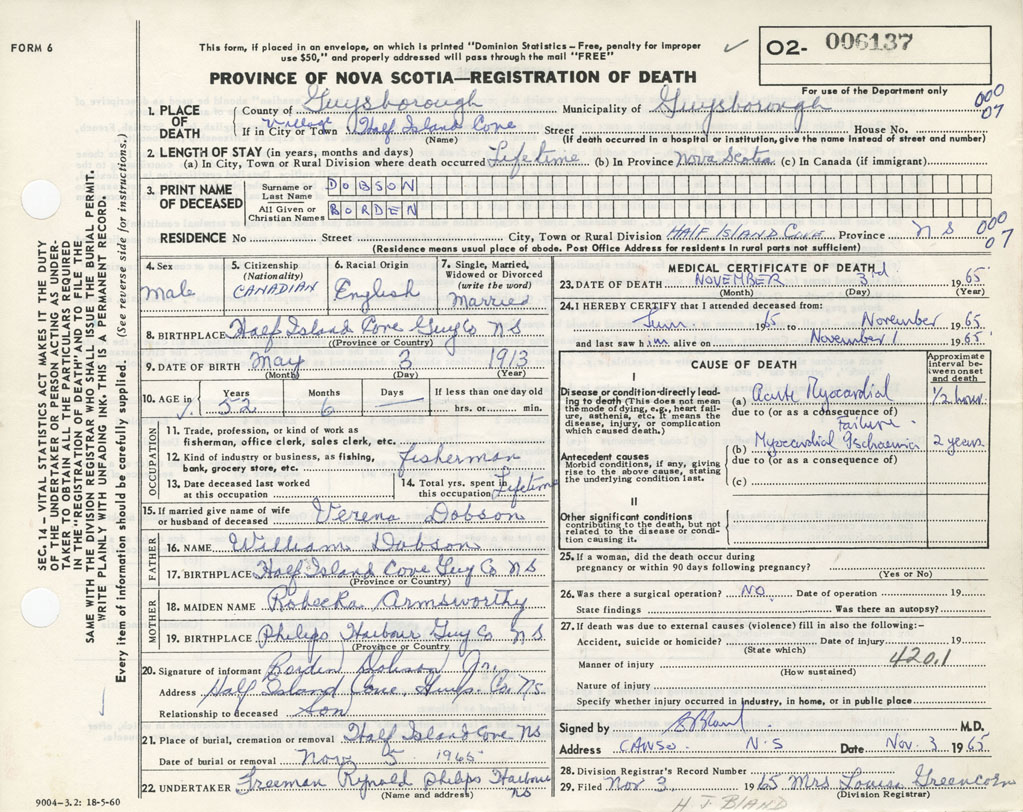 FORM 6
This form, if placed in an envelope, on which is printed "Dominion Statistics – Free, penalty for improper
use $50," and properly addressed will pass through the mail "FREE"
✓
O2- 006137
For use of the Department only
PROVINCE OF NOVA SCOTIA—REGISTRATION OF DEATH
000
07
1. PLACE OF DEATH
County of Guysborough Municipality of Guysborough
village
If in City or Town Half Island Cove Street House No.
(Name) (If death occurred in a hospital or institution, give the name instead of street and number)
2. LENGTH OF STAY (in years, months and days)
(a) In City, Town or Rural Division where death occurred Lifetime (b) In Province Nova Scotia (c) In Canada (if immigrant)
3. PRINT NAME OF DECEASED
Surname or Last Name DOBSON
All Given or Christian Names BORDEN
RESIDENCE No. Street City, Town or Rural Division HALF ISLAND COVE Province NS
(Residence means usual place of abode. Post Office Address for residents in rural parts not sufficient)
000
07
4. Sex
Male
5. Citizenship
(Nationality)
CANADIAN
6. Racial Origin
English
7. Single, Married,
Widowed or Divorced
(write the word)
Married
8. BIRTHPLACE Half Island Cove Guy Co NS
(Province or Country)
9. DATE OF BIRTH May 3 1913
(Month) (Day) (Year)
10. AGE in
Years 52
Months 6
Days —
If less than one day old
hrs. or min.
OCCUPATION
11. Trade, profession, or kind of work as
fisherman, office clerk, sales clerk, etc.
12. Kind of industry or business, as fishing,
bank, grocery store, etc. fisherman
13. Date deceased last worked
at this occupation
14. Total yrs. spent in
this occupation Lifetime
15. If married give name of wife
or husband of deceased Verena Dobson
FATHER
16. NAME William Dobson
17. BIRTHPLACE Half Island Cove Guy Co NS
(Province or Country)
MOTHER
18. MAIDEN NAME Robecka Armsworthy
19. BIRTHPLACE Philips Harbour Guy Co NS
(Province or Country)
20. Signature of informant Borden Dobson Jr.
Address Half Island Cove, Guys. Co. NS.
Relationship to deceased Son
21. Place of burial, cremation or removal Half Island Cove NS
Date of burial or removal Nov 5 1965
22. UNDERTAKER Freeman Rynold Philips Harbour
(Name and address) NS
MEDICAL CERTIFICATE OF DEATH
23. DATE OF DEATH NOVEMBER 3rd 1965
(Month) (Day) (Year)
24. I HEREBY CERTIFY that I attended deceased from:
June 1965 to November 1965
and last saw him alive on November 1 1965
CAUSE OF DEATH
Approximate
interval between
onset
and death
I
Disease or condition directly leading
to death (This does not mean
the mode of dying, e.g., heart failure,
asthenia, etc. It means the
disease, injury, or complication
which caused death.)
(a) Acute Myocardial 1/2 hour.
due to (or as a consequence of)
Failure.
(b) Myocardial Ischaemia 2 years.
due to (or as a consequence of)
Antecedent causes
Morbid conditions, if any, giving
rise to the above cause, stating
the underlying condition last.
(c)
II
Other significant conditions
contributing to the death, but not
related to the disease or condition
causing it.
25. If a woman, did the death occur during
pregnancy or within 90 days following pregnancy?
(Yes or No)
26. Was there a surgical operation? NO Date of operation 19
State findings Was there an autopsy?
27. If death was due to external causes (violence) fill in also the following:–
Accident, suicide or homicide? Date of injury 19
(State which)
420.1
Manner of injury
(How sustained)
Nature of injury
Specify whether injury occurred in industry, in home, or in public place
Signed by M.D.
Address CANSO N.S Date Nov. 3 1965
28. Division Registrar's Record Number
29. Filed Nov 3 1965 Mrs Louise Greencorn
(Division Registrar)
H J BLAND
SEC. 14 – VITAL STATISTICS ACT MAKES IT THE DUTY
OF THE UNDERTAKER OR PERSON ACTING AS UNDERTAKER
TO OBTAIN ALL THE PARTICULARS REQUIRED
IN THE "REGISTRATION OF DEATH" AND TO FILE THE
SAME WITH THE DIVISION REGISTRAR WHO SHALL ISSUE THE BURIAL PERMIT.
WRITE PLAINLY WITH UNFADING INK. THIS IS A PERMANENT RECORD.
Every item of information should be carefully supplied. (See reverse side for instructions.)
9004–3.2: 18-5-60